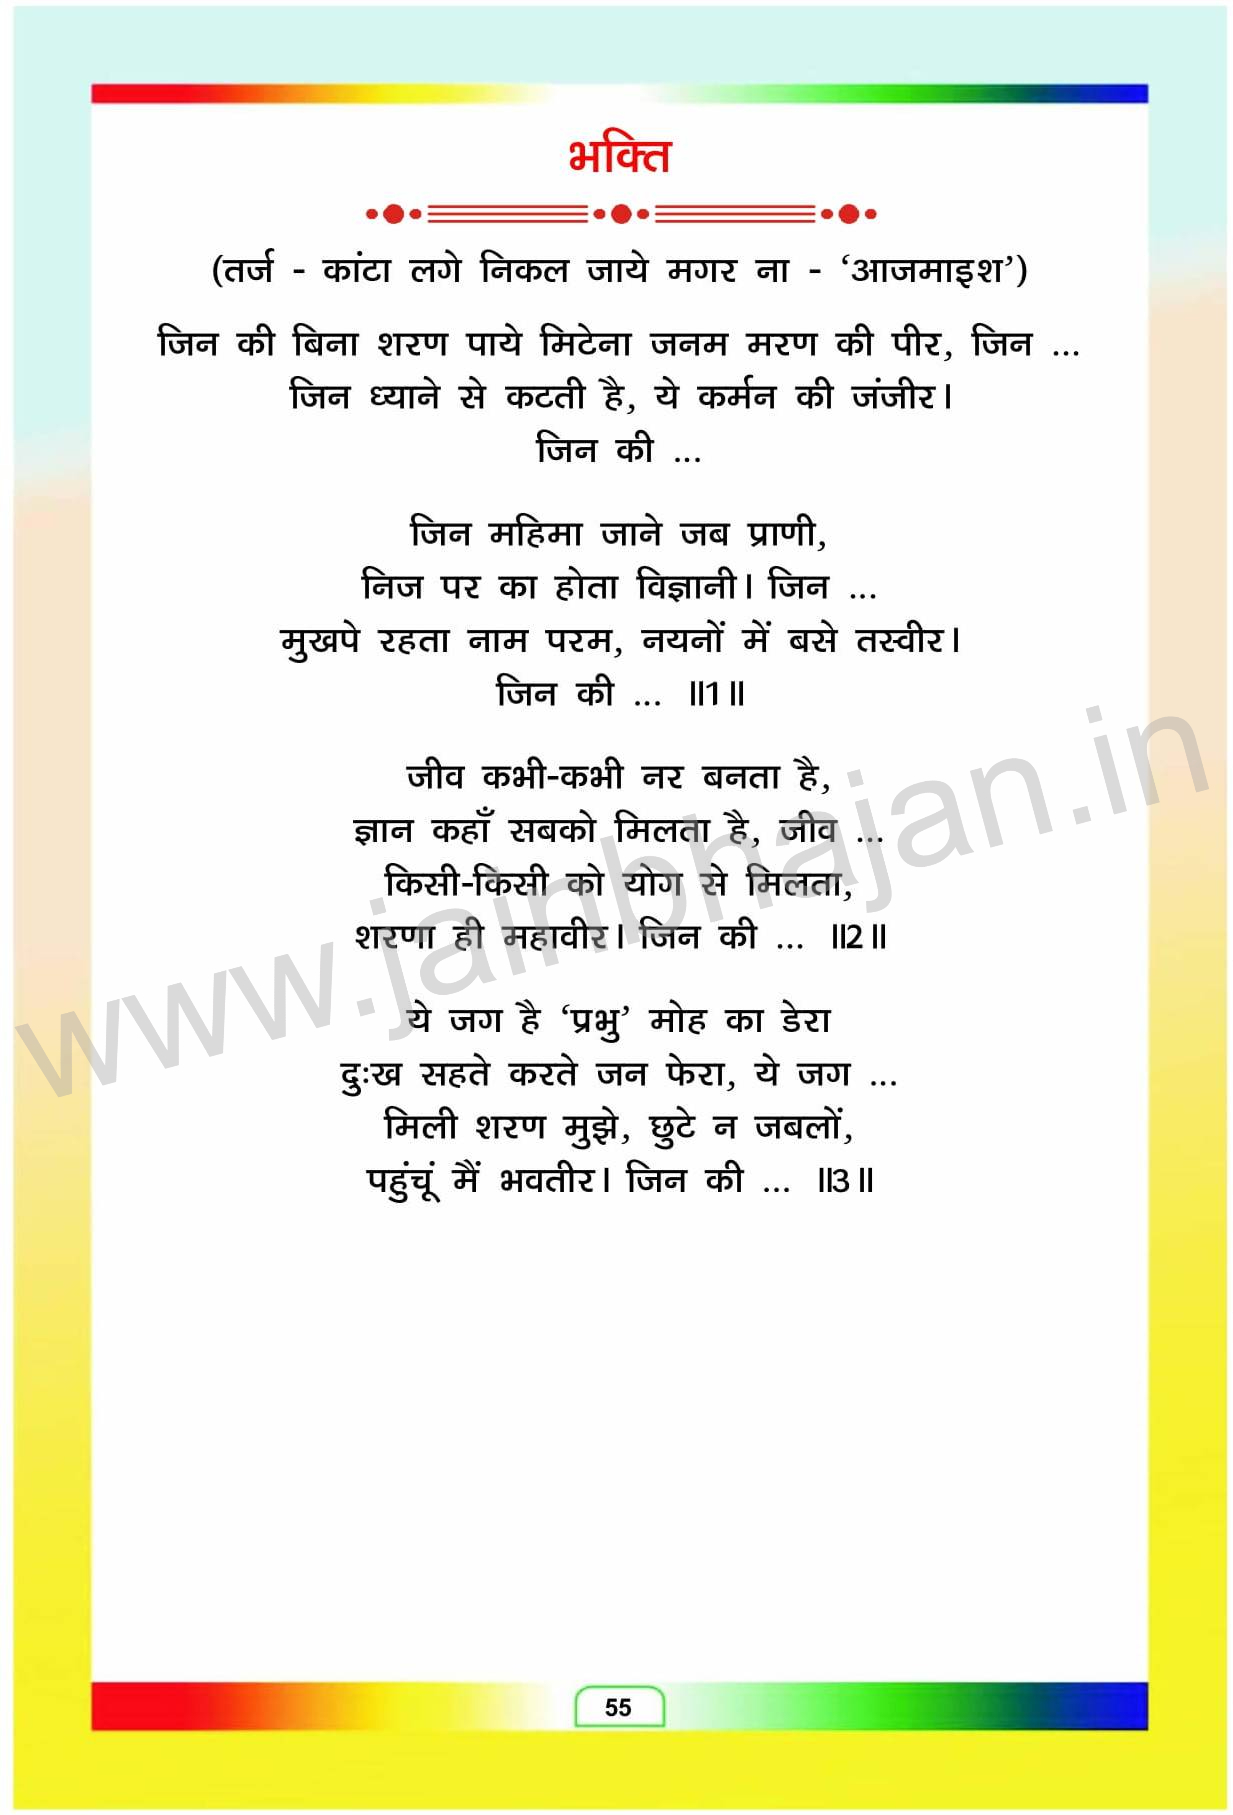 भक्ति
(तर्ज - कांटा लगे निकल जाये मगर ना - ‘आजमाइश’)
जिन की बिना शरण पाये मिटेना जनम मरण की पीर, जिन ...
जिन ध्याने से कटती है, ये कर्मन की जंजीर।
जिन की ...
जिन महिमा जाने जब प्राणी,
निज पर का होता विज्ञानी। जिन ...
मुखपे रहता नाम परम, नयनों में बसे तस्वीर।
जिन की ... ॥1॥
जीव कभी-कभी नर बनता है,
ज्ञान कहाँ सबको मिलता है, जीव ...
किसी-किसी को योग से मिलता,
शरणा ही महावीर। जिन की ... ॥2॥
ये जग है ‘प्रभु’ मोह का डेरा
दुःख सहते करते जन फेरा, ये जग ...
मिली शरण मुझे, छुटे न जबलों,
पहुंचूं मैं भवतीर। जिन की ... ॥3॥
www.jainbhajan.in
55